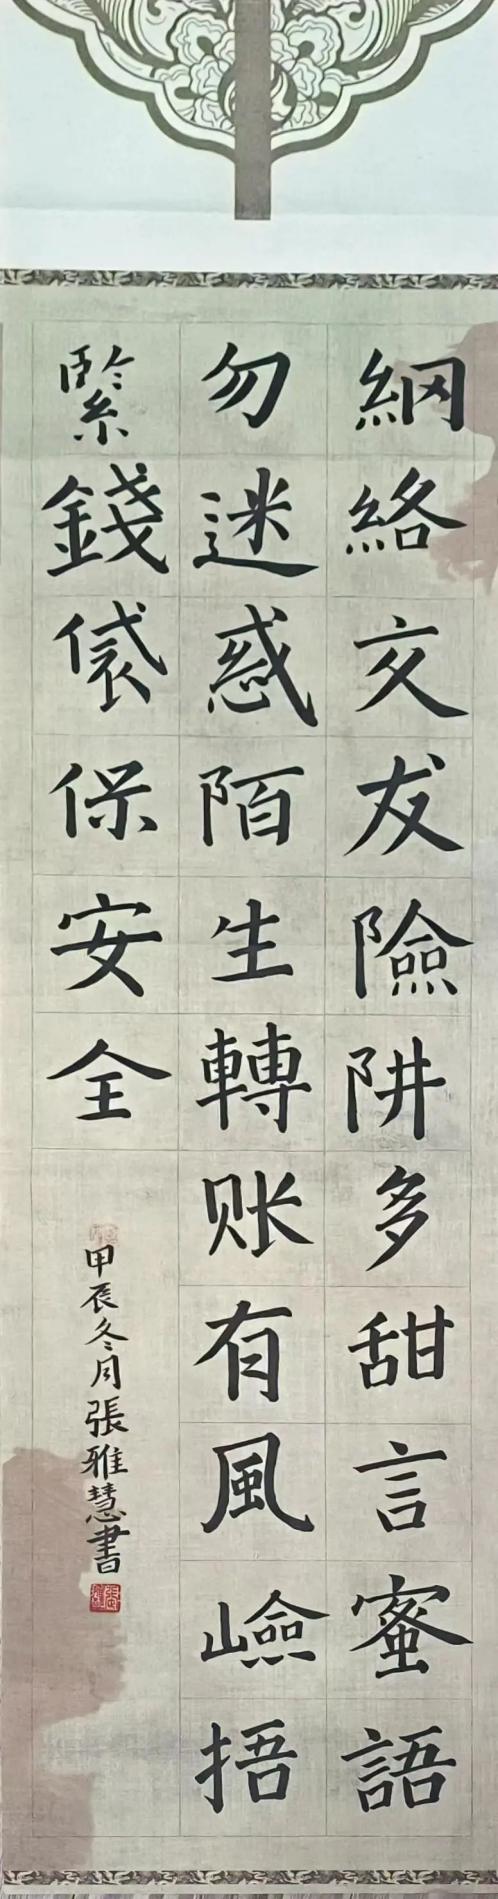 網絡交友險阱多甜言蜜語
勿迷惑陌生轉账有風嶮捂
緊錢袋保安全
甲辰冬月張雅慧書